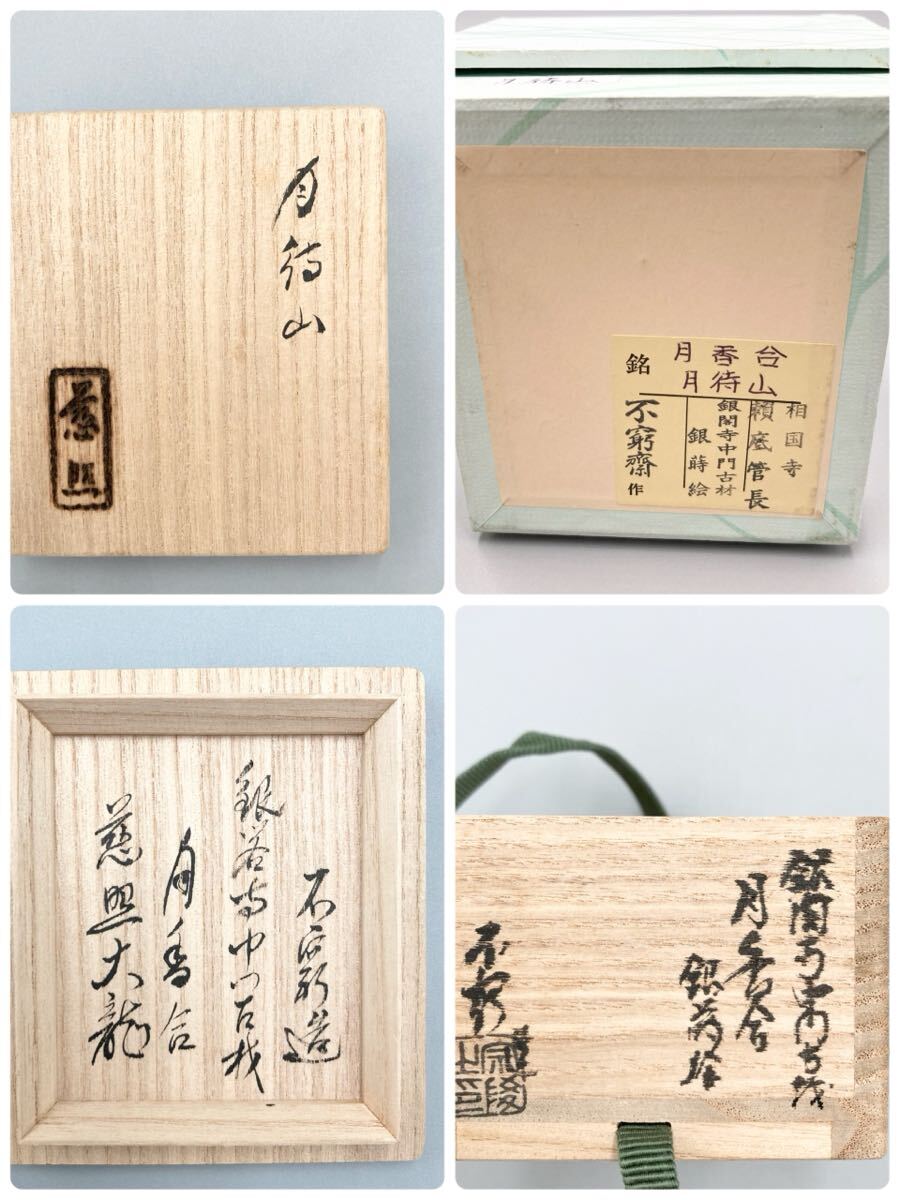 月待山
慈照
月待山
月香合
銘 月待山
相国寺
頼底管長
銀閣寺中門古材
銀蒔絵
不窮齋作
不窮造
銀閣寺中門古材
月香合
慈照大龍
銀閣寺中門古材
月香合
銀蒔絵
不窮